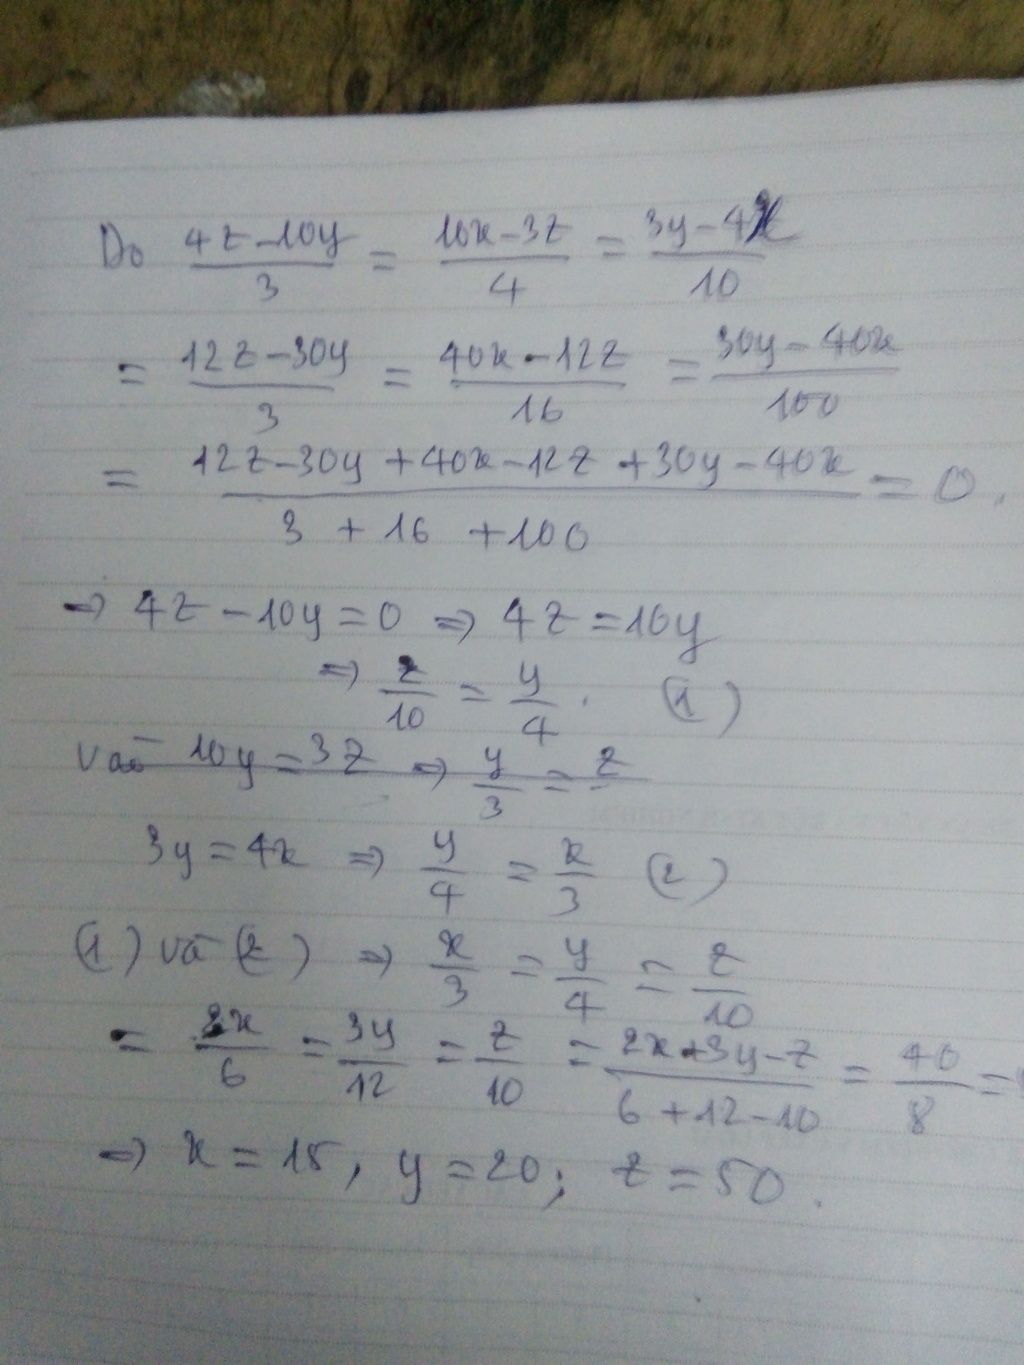 Do (4z-10y)/3 = (10x-3z)/4 = (3y-4x)/10
= (12z-30y)/3 = (40x-12z)/16 = (30y-40x)/100
= (12z-30y+40x-12z+30y-40x)/(3+16+100) = 0.
=> 4z-10y=0 => 4z=10y
=> z/10 = y/4. (1)
Và 10y=3z => y/3 = z
3y=4x => y/4 = x/3 (2)
(1) và (2) => x/3 = y/4 = z/10
= 2x/6 = 3y/12 = z/10 = (2x+3y-z)/(6+12-10) = 40/8 =
=> x=15, y=20; z=50.